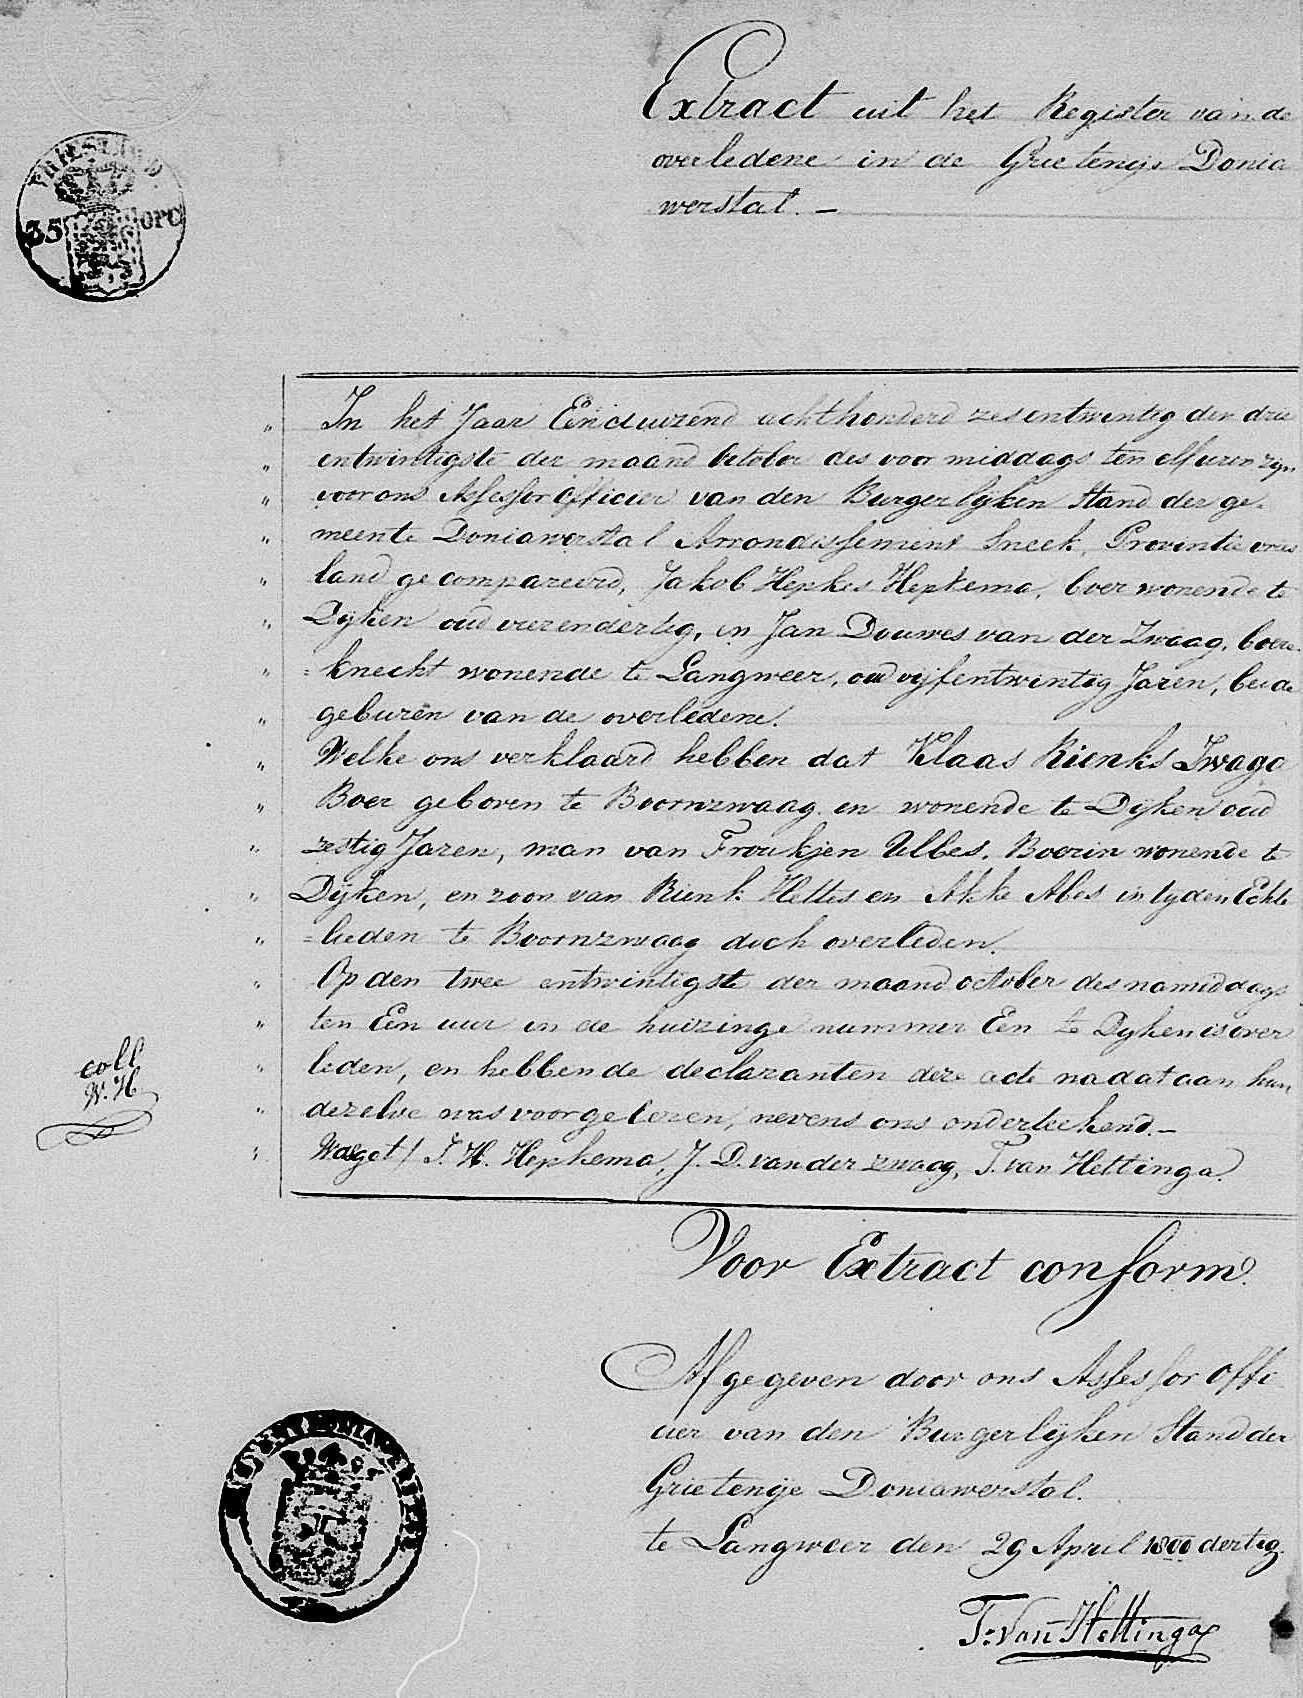 Extract uit het Register van de
overledene in de Grietenije Donia
werstal. —
VRIESLAND.
35 OPC
In het Jaar Eenduizend achthonderd zesentwintig den drie
entwintigste der maand October des voormiddags ten elf uren zijn
voor ons Assessor Officier van den Burgerlyken Stand der ge-
meente Doniawerstal Arrondissement Sneek, Provintie vries
land gecompareerd, Jakob Hepkes Hepkema, boer wonende te
Dyken oud vierendertig, en Jan Douwes van der Zwaag, boere-
= knecht wonende te Langweer, oud vijfentwintig Jaren, beide
geburen van de overledene.
Welke ons verklaard hebben dat Klaas Rienks Zwaga
Boer geboren te Boornzwaag en wonende te Dijken oud
zestig Jaren, man van Froukjen Ulbes, Boerin wonende te
Dijken, en zoon van Rienk Hettes en Akke Abes in tyden Echte
= lieden te Boornzwaag doch overleden.
Op den twee entwintigste der maand october des namiddags
ten Een uur in de huizinge nummer Een te Dyken is over
leden, en hebben de declaranten deze acte na dat aan hun
dezelve was voorgelezen, nevens ons onderteekend. —
Wasget/ J. H. Hepkema, J. D. van der zwaag, T. van Hettinga.
coll
W. H.
Voor Extract conform.
Afgegeven door ons Assessor Offi
cier van den Burgerlijken Stand der
Grietenije Doniawerstal.
te Langweer den 29 April 1800 dertig.
T. Van Hettinga